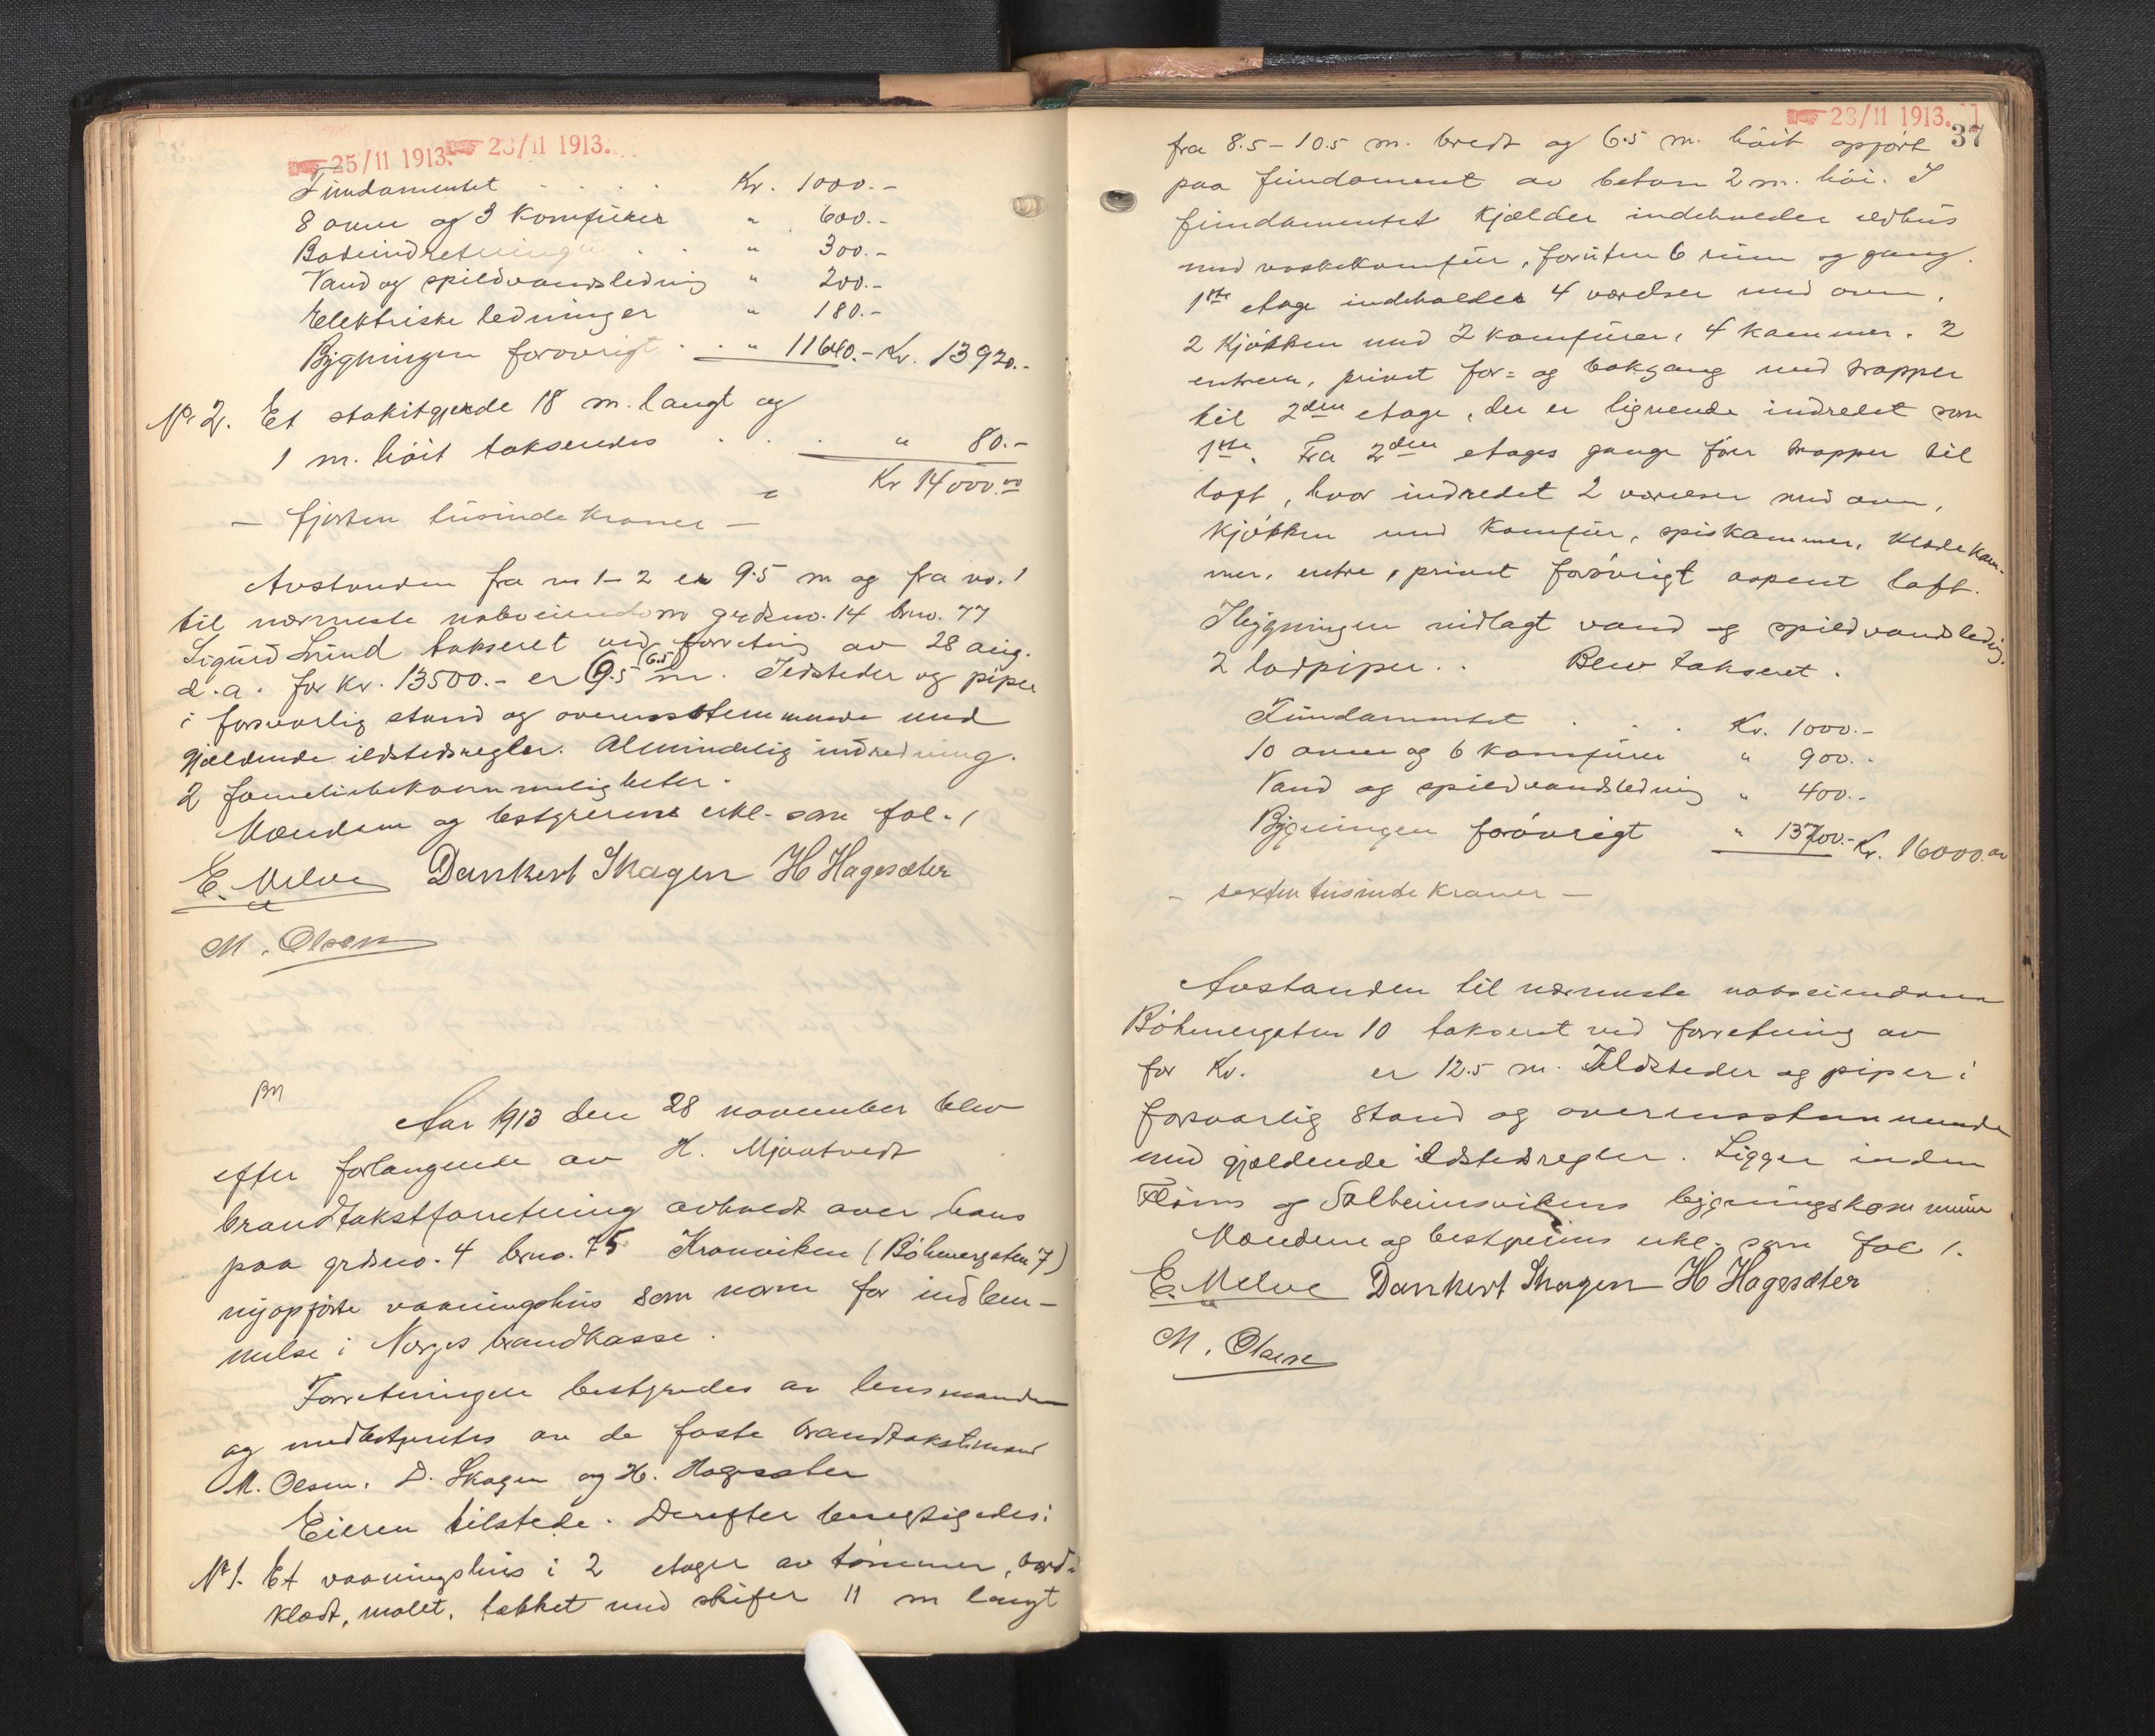 25/11 1913. 28/11 1913.
Fundamentet . . . . Kr. 1000.-
8 ovne og 3 komfürer " 600.-
Badeindretninger . . " 300.-
Vand og spildvandsledning " 200.-
Elektriske ledninger " 180.-
Bygningen forøvrigt . . " 11640.- Kr. 13920.-
No 2. Et stakitgjerde 18 m. langt og
1 m. høit takseredes . . . " 80.-
Kr 14000.00
- fjorten tusinde kroner -
Avstanden fra no 1-2 er 9.5 m og fra no. 1
til nærmeste naboeiendom grdsno. 14 brno. 77
Sigurd Lund takseret ved forretning av 28 aug.
d.a. for Kr. 13500.- er 9.5 (6.5) m. Ildsteder og piper
i forsvarlig stand og overensstemmende med
gjældende ildstedsregler. Almindelig indredning.
2 familiebekvemmeligheter.
Mændene og bestyreren erkl. som fol. 1
E. Melve Dankert Skagen H Hagesæter
M. Olsen
Aar 1913 den 28 november blev
efter forlangende av H. Mjøvatvedt
brandtakstforretning avholdt over hans
paa grdsno. 4 brno. 75 Kronviken (Böhmergaten 7)
nyopførte vaaningshus som norm for indlem-
melse i Norges brandkasse.
Forretningen bestyredes av lensmanden
og medbetjentes av de faste brandtakstmænd
M. Olsen, D. Skagen og H. Hagesæter
Eieren tilstede. Derefter besegtigedes:
No 1. Et vaaningshus i 2 etager av tømmer, bord-
klædt, malet, tækket med skifer 11 m langt
28/11 1913.
37
fra 8.5 - 10.5 m. bredt og 6.5 m. høit opført
paa fundament av beton 2 m. høi. I
fundamentet kjælder indeholder ildhus
med vaskekomfür, foruten 6 rum og gang.
1ste etage indeholder 4 værelser med ovn,
2 kjøkken med 2 komfürer, 4 kammer, 2
entreer, privet for- og bakgang med trapper
til 2den etage, der er lignende indredet som
1ste. Fra 2den etages gange fører trapper til
loft, hvor indredet 2 værelser med ovn,
kjøkken med komfür, spiskammer, klædekam-
mer, entre, privet forøvrigt aapent loft.
I bygningen nedlagt vand og spildvandsledning.
2 lodpiper. . Blev takseret.
Fundamentet . . . Kr. 1000.-
10 ovne og 6 komfürer " 900.-
Vand og spildvandsledning " 400.-
Bygningen forøvrigt " 13700.- Kr. 16000.00
- sexten tusinde kroner -
Avstanden til nærmeste naboeiendom
Böhmergaten 10 takseret ved forretning av
for Kr. er 12.5 m. Ildsteder og piper i
forsvarlig stand og overensstemmende
med gjældende ildstedsregler. Ligger inden
Fløens og Solheimsvikens bygningskommune
Mændene og bestyreren erkl. som fol 1.
E. Melve Dankert Skagen H Hagesæter
M. Olsen